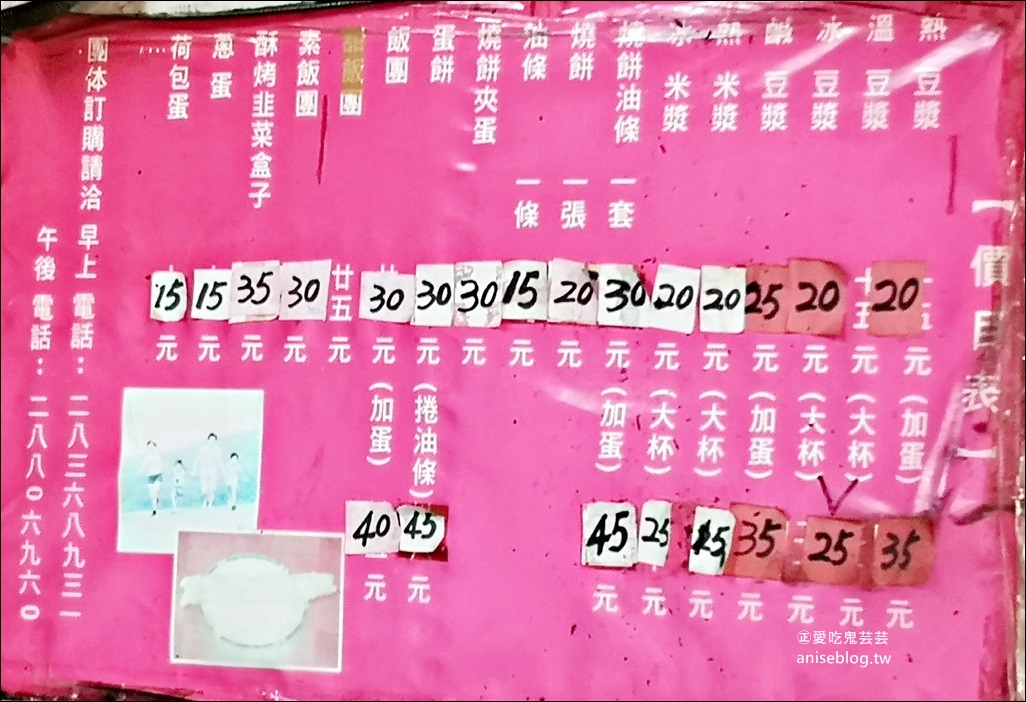 價目表
熱豆漿 20元(加蛋)35元
溫豆漿 十五元(大杯)25元
冰豆漿 20元(大杯)元
鹹豆漿 25元(加蛋)35元
熱米漿 20元(大杯)25元
冰米漿 20元(大杯)25元
燒餅油條 一套 30元(加蛋)45元
燒餅 一張 20元
油條 一條 15元
燒餅夾蛋 30元
蛋餅 30元(捲油條)45元
飯團 30元(加蛋)40元
飯團 廿五元
素飯團 30元
酥烤韭菜盒子 35元
蔥蛋 15元
荷包蛋 15元
團体訂購請洽 早上 電話：二八三六八九三一
午後 電話：二八八０六九六０
㊣愛吃鬼芸芸
aniseblog.tw